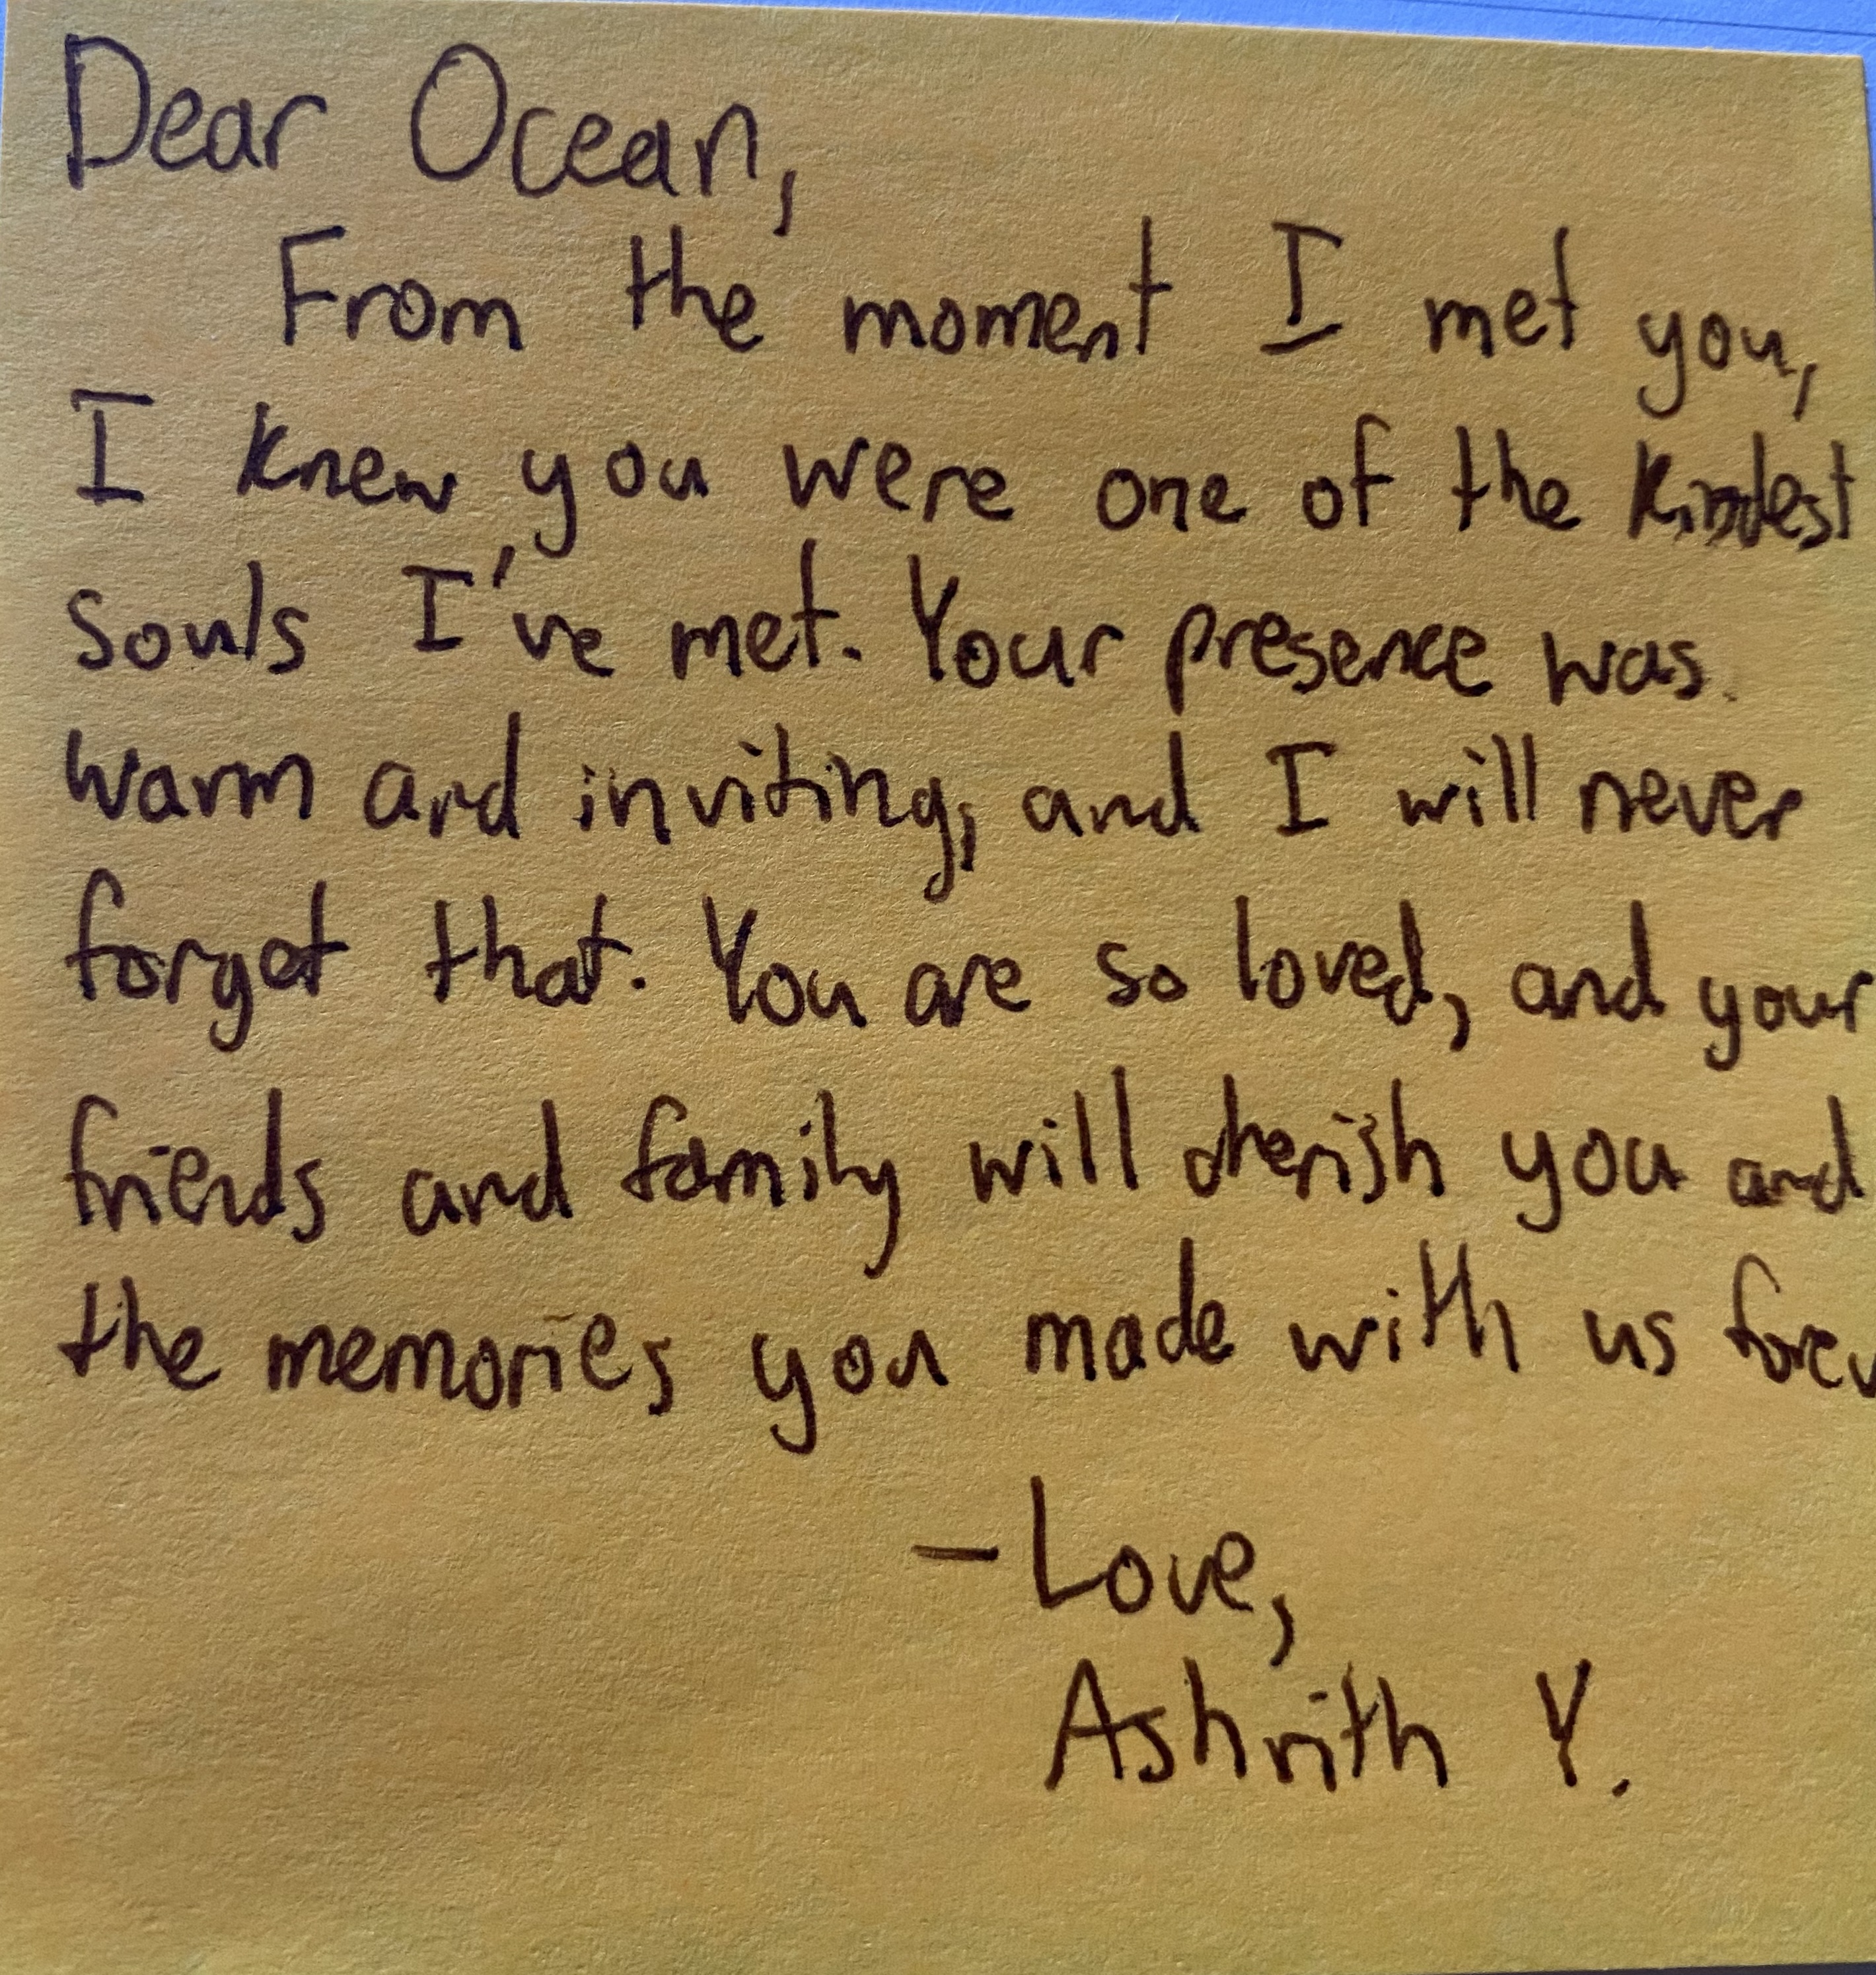 Dear Ocean,
From the moment I met you,
I knew you were one of the kindest
souls I've met. Your presence was
warm and inviting, and I will never
forget that. You are so loved, and your
friends and family will cherish you and
the memories you made with us forev
-Love,
Ashrith Y.